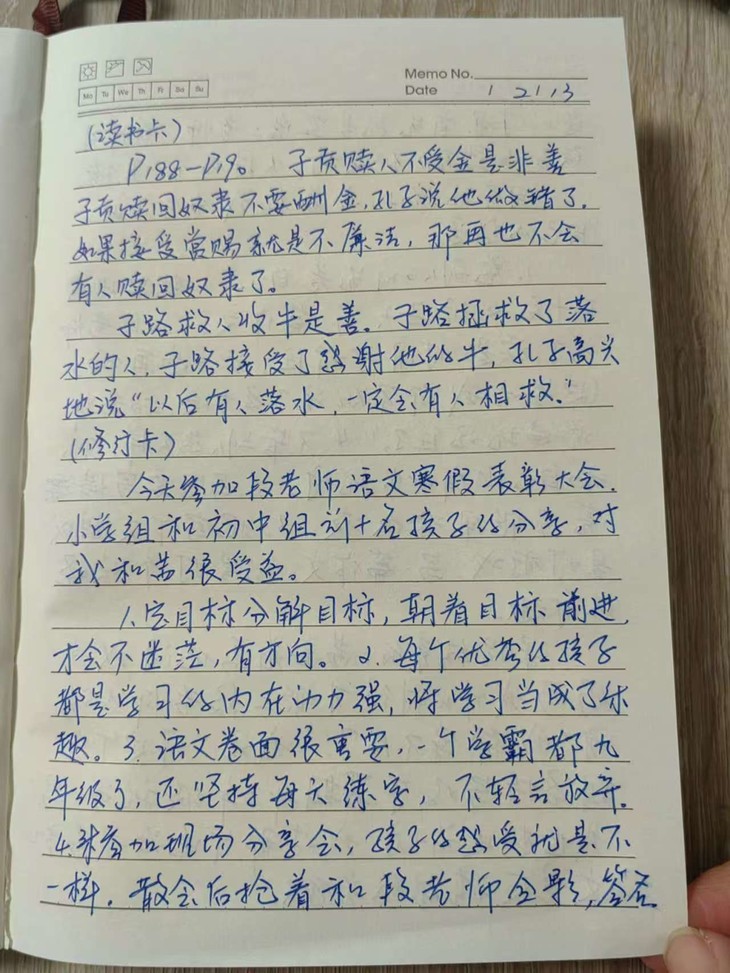 Memo No.
Mo Tu We Th Fr Sa Su
Date 1 2113
(读书卡)
P188—P190 子贡赎人不受金是非善
子贡赎回奴隶不要酬金,孔子说他做错了.
如果接受赏赐就是不廉洁,那再也不会
有人赎回奴隶了。
子路救人收牛是善。子路拯救了落
水的人,子路接受了感谢他的牛,孔子高兴
地说“以后有人落水,一定会有人相救.”
(修行卡)
今天参加段老师语文寒假表彰大会.
小学组和初中组前十名孩子的分享,对
我和苗很受益。
1.定目标分解目标,朝着目标前进,
才会不迷茫,有方向。2.每个优秀的孩子
都是学习的内在动力强,将学习当成了乐
趣。3.语文卷面很重要,一个学霸都九
年级了,还坚持每天练字,不轻言放弃.
4.参加现场分享会,孩子的感受就是不
一样.散会后抢着和段老师合影,签名